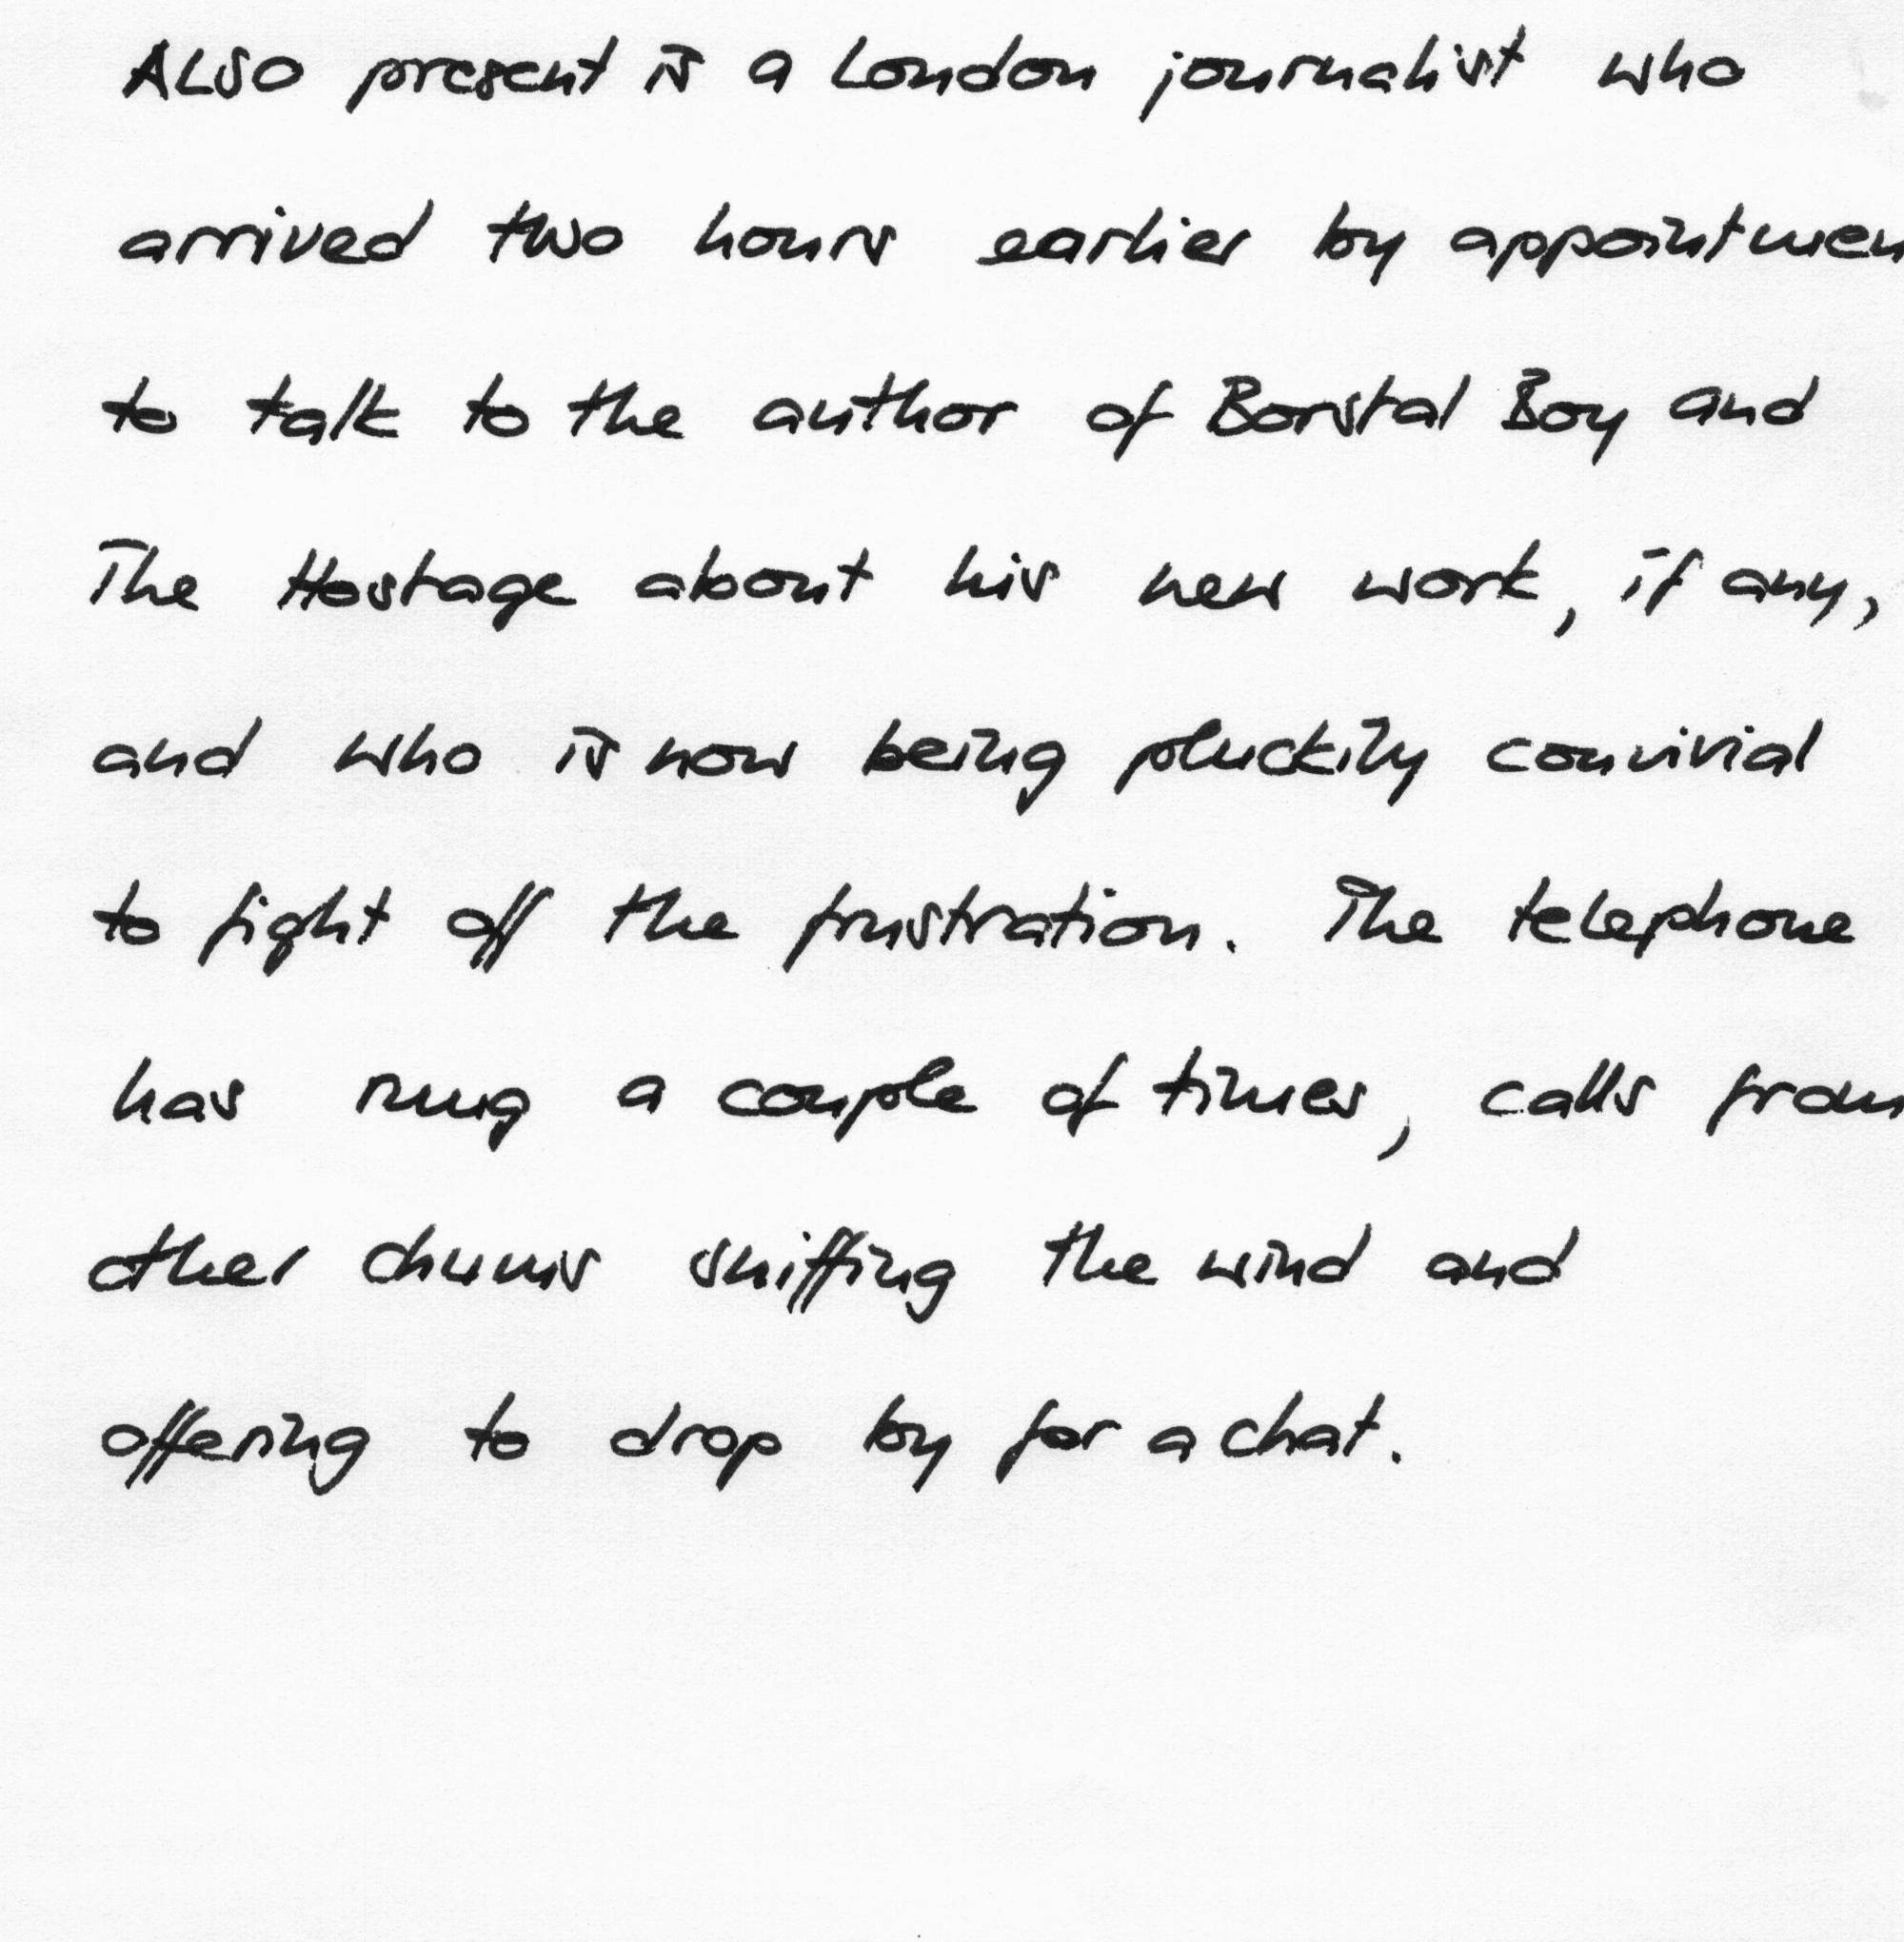 ALSO present is a London journalist who
arrived two hours earlier by appointmen
to talk to the author of Borstal Boy and
The Hostage about his new work, if any,
and who is now being pluckily convivial
to fight off the frustration. The telephone
has rung a couple of times, calls from
other chums sniffing the wind and
offering to drop by for a chat.